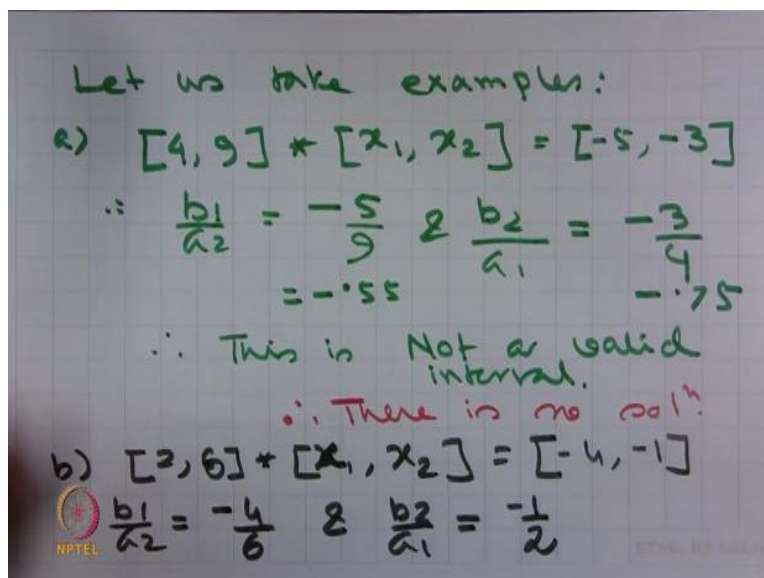 Let us take examples:
a) [4, 9] * [x₁, x₂] = [-5, -3]
∴ b1/a2 = -5/9 & b2/a₁ = -3/4
= -.55 -.75
∴ This is Not a valid
interval.
∴ There is no solⁿ.
b) [2, 6] * [x₁, x₂] = [-4, -1]
b1/a2 = -4/6 & b2/a1 = -1/2
NPTEL